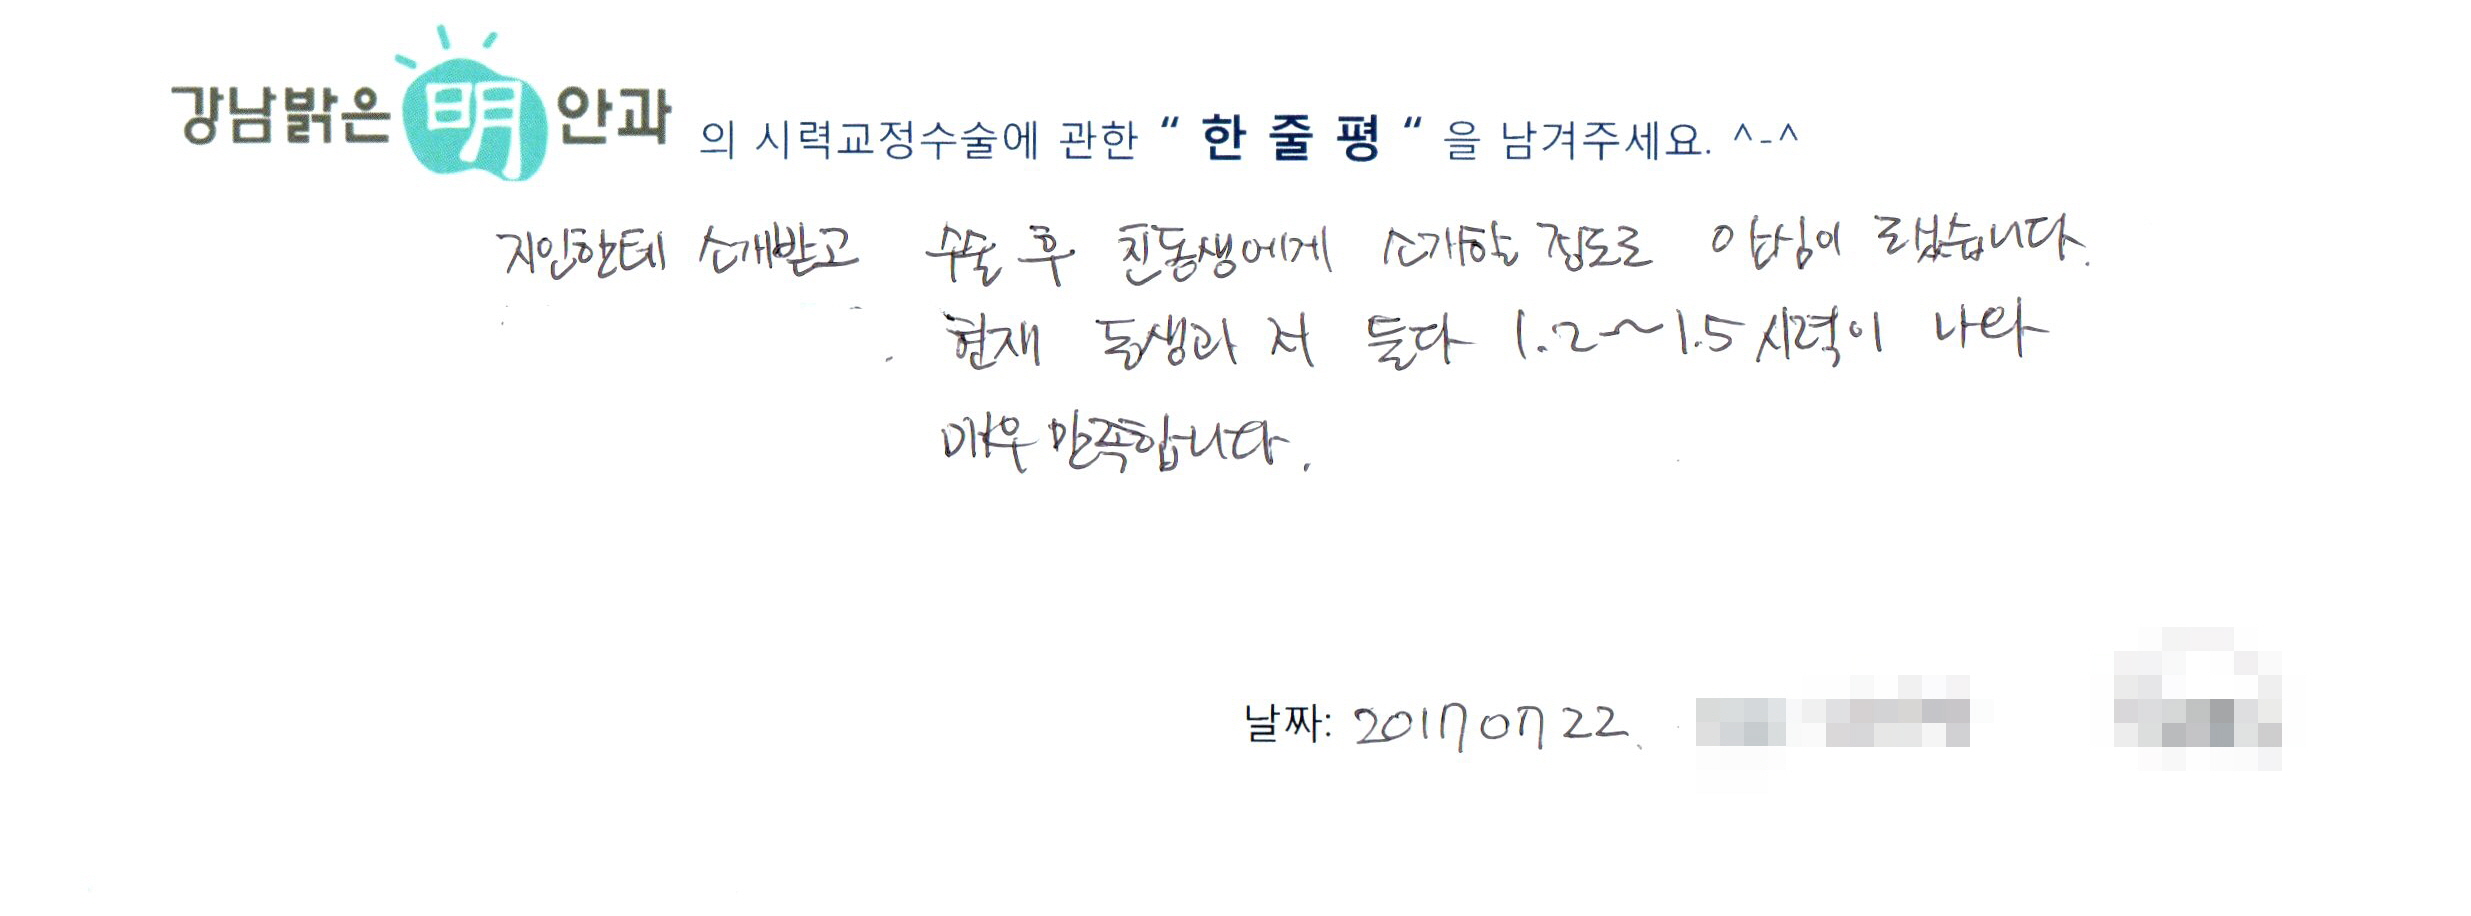 강남밝은 明 안과 의 시력교정수술에 관한 “ 한 줄 평 “ 을 남겨주세요. ^-^
지인한테 소개받고 수술 후 친동생에게 소개할 정도로 안심이 되었습니다.
현재 동생과 저 둘다 1.2~1.5 시력이 나와
매우 만족합니다.
날짜: 2017 07 22.